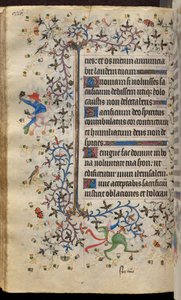 ries: et os meum annuncia
bit laudem tuam.
Quoniam si voluisses sa
crificium dedissem utiqꝫ: olo
caustis non delectaberis
Sacrificium deo spiritus
contribulatus: cor contritum
et humiliatum deus non de
spicies.
Benigne fac domine in bo
na voluntate tua syon: ut
edificentur muri iherusalem
Tunc acceptabis sacrificiu
iusticie oblationes et holocau